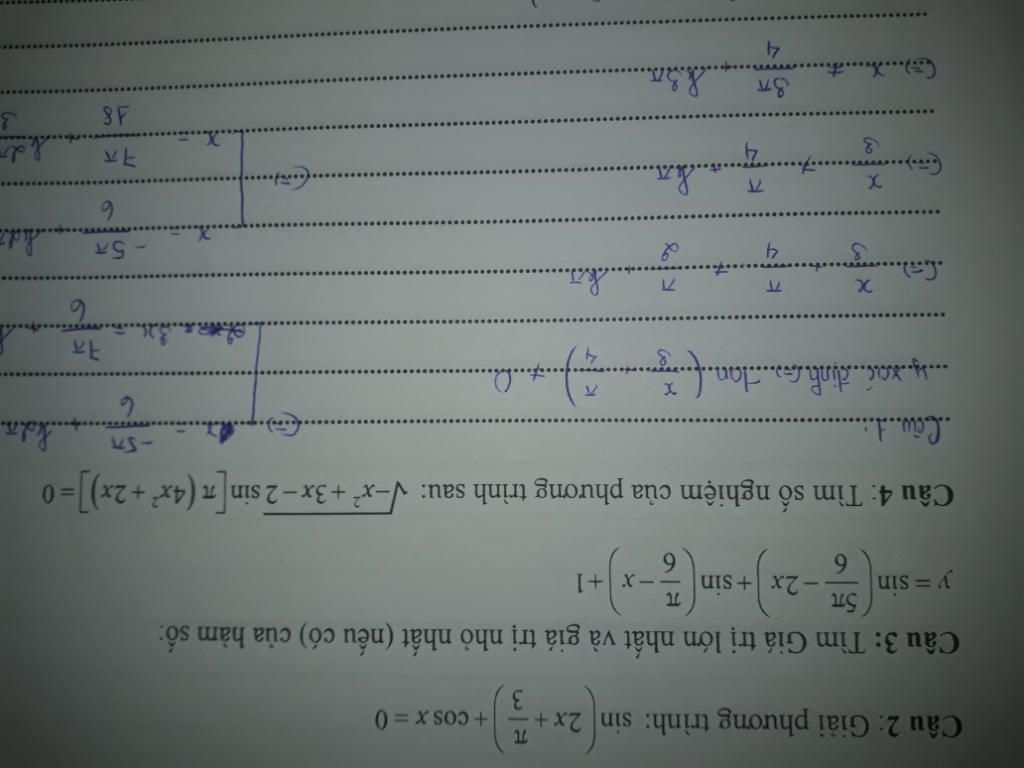 Câu 2: Giải phương trình: sin(2x + π/3) + cos x = 0
Câu 3: Tìm Giá trị lớn nhất và giá trị nhỏ nhất (nếu có) của hàm số:
y = sin(5π/6 − 2x) + sin(π/6 − x) + 1
Câu 4: Tìm số nghiệm của phương trình sau: √(−x² + 3x − 2) sin[π(4x² + 2x)] = 0
Câu 1:
y xác định (=) tan(x/3 + π/4) ≠ 0
(=) x/3 + π/4 ≠ π/2 + kπ
(=) x/3 ≠ π/4 + kπ
(=) x ≠ 3π/4 + k3π
(=) x = −5π/6 + k2π
3x = 7π/6 +
(=) x = −5π/6 + k2π
x = 7π/18 + k2π/3